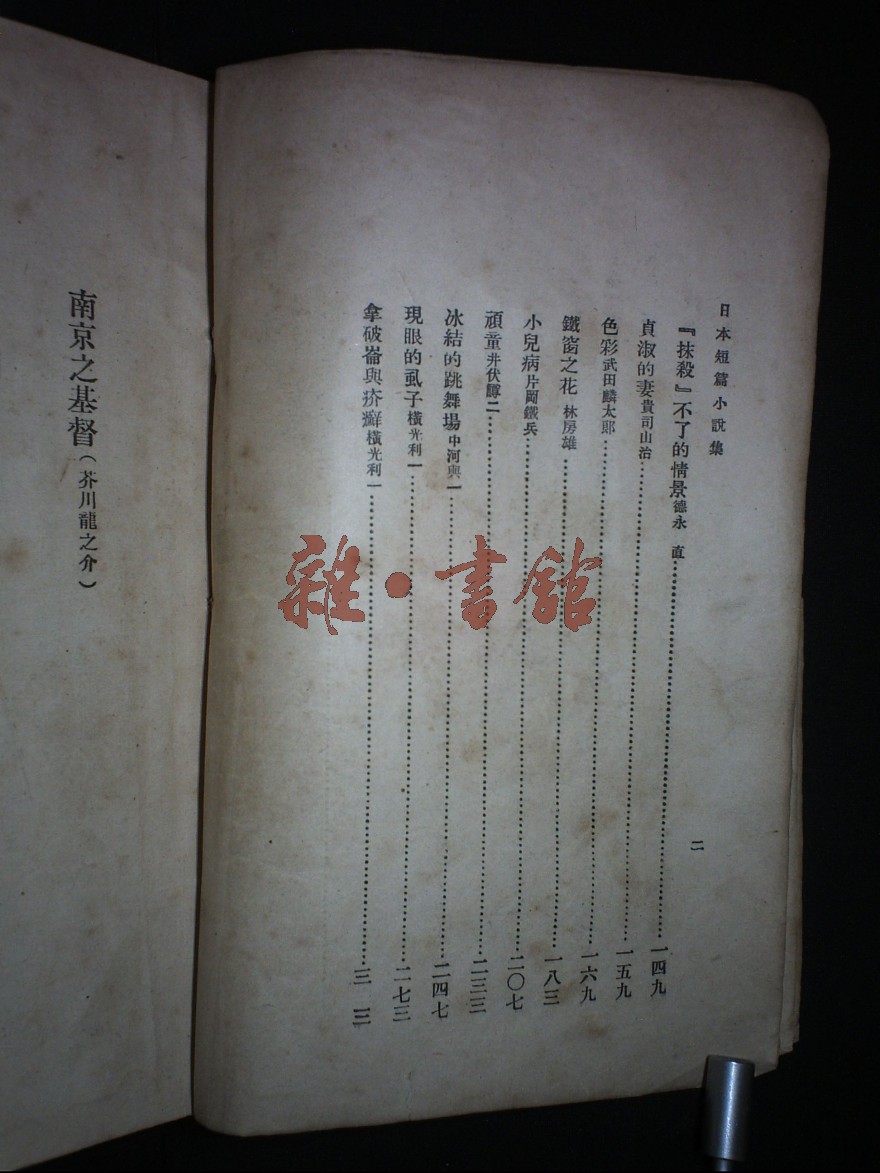 日本短篇小說集
『抹殺』不了的情景德永 直……一四九
貞淑的妻貴司山治……一五九
色彩武田麟太郎……一六九
鐵窗之花 林房雄……一八三
小兒病片岡鐵兵……二〇七
頑童井伏鱒二……二三三
冰結的跳舞場中河與一……二四七
現眼的虱子橫光利一……二七三
拿破崙與疥癬橫光利一……
二
南京之基督(芥川龍之介)
雜·書館